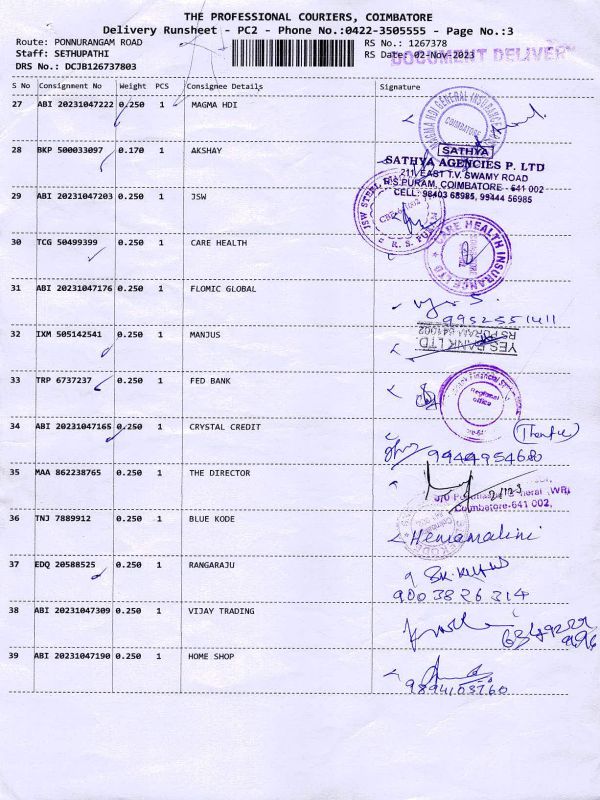 THE PROFESSIONAL COURIERS, COIMBATORE
Delivery Runsheet - PC2 - Phone No.:0422-3505555 - Page No.:3
Route: PONNURANGAM ROAD RS No.: 1267378
Staff: SETHUPATHI RS Date: 02-Nov-2023 DOCUMENT DELIVERY
DRS No.: DCJB126737803
S No Consignment No Weight PCS Consignee Details Signature
27 ABI 20231047222 0.250 1 MAGMA HDI
MAGMA HDI GENERAL INSURANCE
COIMBATORE
28 BKP 500033097 0.170 1 AKSHAY
SATHYA
SATHYA AGENCIES P. LTD
211, EAST T.V. SWAMY ROAD
R.S.PURAM, COIMBATORE - 641 002
CELL: 98403 68985, 99444 56985
29 ABI 20231047203 0.250 1 JSW
JSW STEEL
R. S. PURAM
30 TCG 50499399 0.250 1 CARE HEALTH
CARE HEALTH INSURANCE LTD
31 ABI 20231047176 0.250 1 FLOMIC GLOBAL
9952551411
32 IXM 505142541 0.250 1 MANJUS
YES BANK LTD
RS PURAM 641002
33 TRP 6737237 0.250 1 FED BANK
Regional
office
34 ABI 20231047165 0.250 1 CRYSTAL CREDIT
9944954680
35 MAA 862238765 0.250 1 THE DIRECTOR
Coimbatore-641 002.
36 TNJ 7889912 0.250 1 BLUE KODE
Hemamalini
37 EDQ 20588525 0.250 1 RANGARAJU
9003826314
38 ABI 20231047309 0.250 1 VIJAY TRADING
39 ABI 20231047190 0.250 1 HOME SHOP